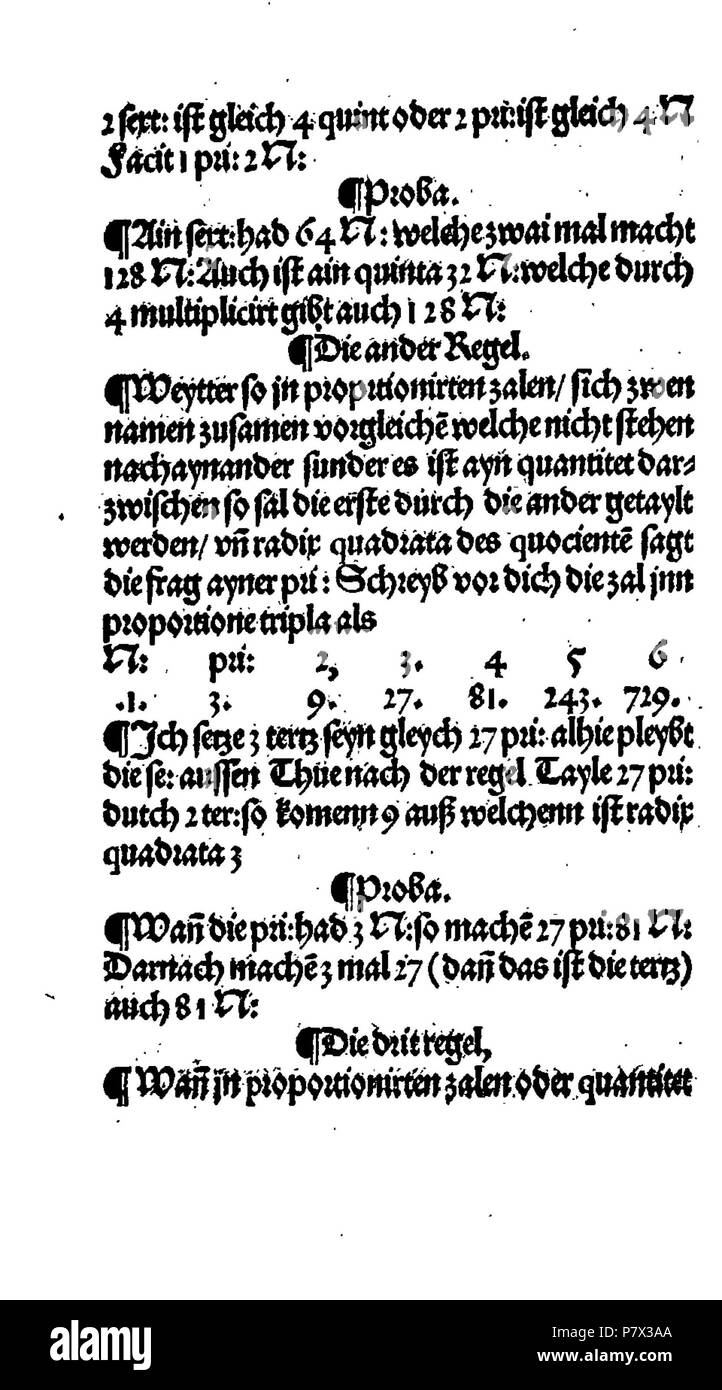 2 sext: ist gleich 4 quint oder 2 pri: ist gleich 4 N
Facit 1 pri: 2 N:
¶Proba.
¶Ain sext: had 64 N: welche zwai mal macht
128 N: Auch ist ain quinta 32 N: welche durch
4 multiplicirt gibt auch 128 N:
¶Die ander Regel.
¶Weytter so jn proportionirten zalen/ sich zwen
namen zusamen vorgleichē welche nicht stehen
nachaynander sunder es ist ayn quantitet dar⸗
zwischen so sal die erste durch die ander getaylt
werden/ vn̄ radix quadrata des quocientē sagt
die frag ayner pri: Schreyb vor dich die zal jnn
proportione tripla als
N: pri: 2, 3. 4 5 6
.1. 3. 9. 27. 81. 243. 729.
¶Ich setze 3 tertz seyn gleych 27 pri: alhie pleybt
die se: aussen Thue nach der regel Tayle 27 pri:
dutch 2 ter: so komenn 9 auß welchenn ist radix
quadrata 3
¶Proba.
¶Wan̄ die pri: had 3 N: so machē 27 pri: 81 N:
Darnach machē 3 mal 27 (dan̄ das ist die tertz)
auch 81 N:
¶Die drit regel,
¶Wan̄ jn proportionirten zalen oder quantitet
alamy
Image ID: P7X3AA
www.alamy.com